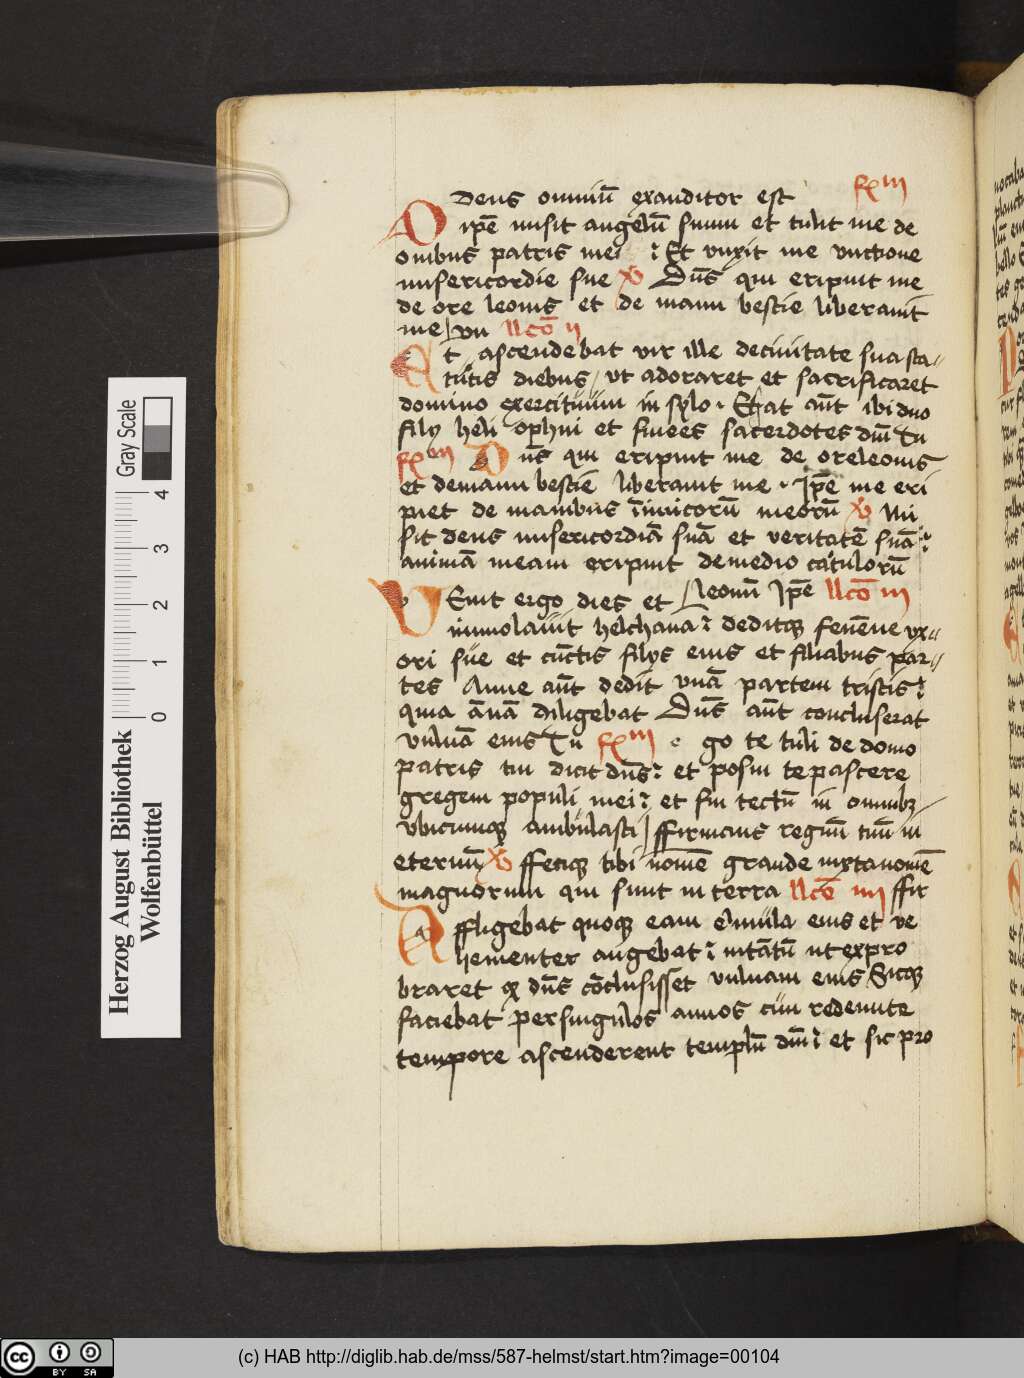 Deus omniū exauditor est Rm
ipē misit angelū suum et tulit me de
ouibus patris mei : Et vnxit me vnctione
misericordie sue Dūs qui eripuit me
de ore leonis et de manu bestie liberauit
me vn llcō ij
Et ascendebat vir ille deciuitate suasta-
tūtis diebus / vt adoraret et sacrificaret
domino exercituum in sylo. Erāt aūt ibi duo
filij heli ophni et finees sacerdotes dūi Tu
Rm Dūs qui eripuit me de oreleonis
et demanu bestie liberauit me. Ipē me eri
piet de manibus īimicorū meorū Mi
sit deus misericordiā suā et veritatē suā:
animā meam eripuit demedio catulorū
Leonū Ipē llcō iij
VEnit ergo dies et
immolauit helchana: deditqꝫ fenēne vx-
ori sue et cūctis filijs eius et filiabus par-
tes Anne aūt dedit vnā partem tristis:
quia āuā diligebat Dūs aūt concluserat
vuluā eius Tu Rm ego te tuli de domo
patris tui dicit dūs: et posui tepascere
gregem populi mei: et fui tectū in omnibꝫ
vbicumqꝫ ambulasti ffirmans regnū tuū in
eternū ffeciqꝫ tibi nomē grande iuxtanomē
magnorum qui sunt interra llcō iiij ffir
Affligebat quoqꝫ eam emula eius et ve
hementer augebat: intātū utexpro
braret qꝫ dūs cōclusisset vuluam eius Sicqꝫ
faciebat persingulos annos cūm redeunte
tempore ascenderent templū dūi: et sic pro
Gray Scale
0 1 2 3 4
Herzog August Bibliothek
Wolfenbüttel
cc BY SA
(c) HAB http://diglib.hab.de/mss/587-helmst/start.htm?image=00104